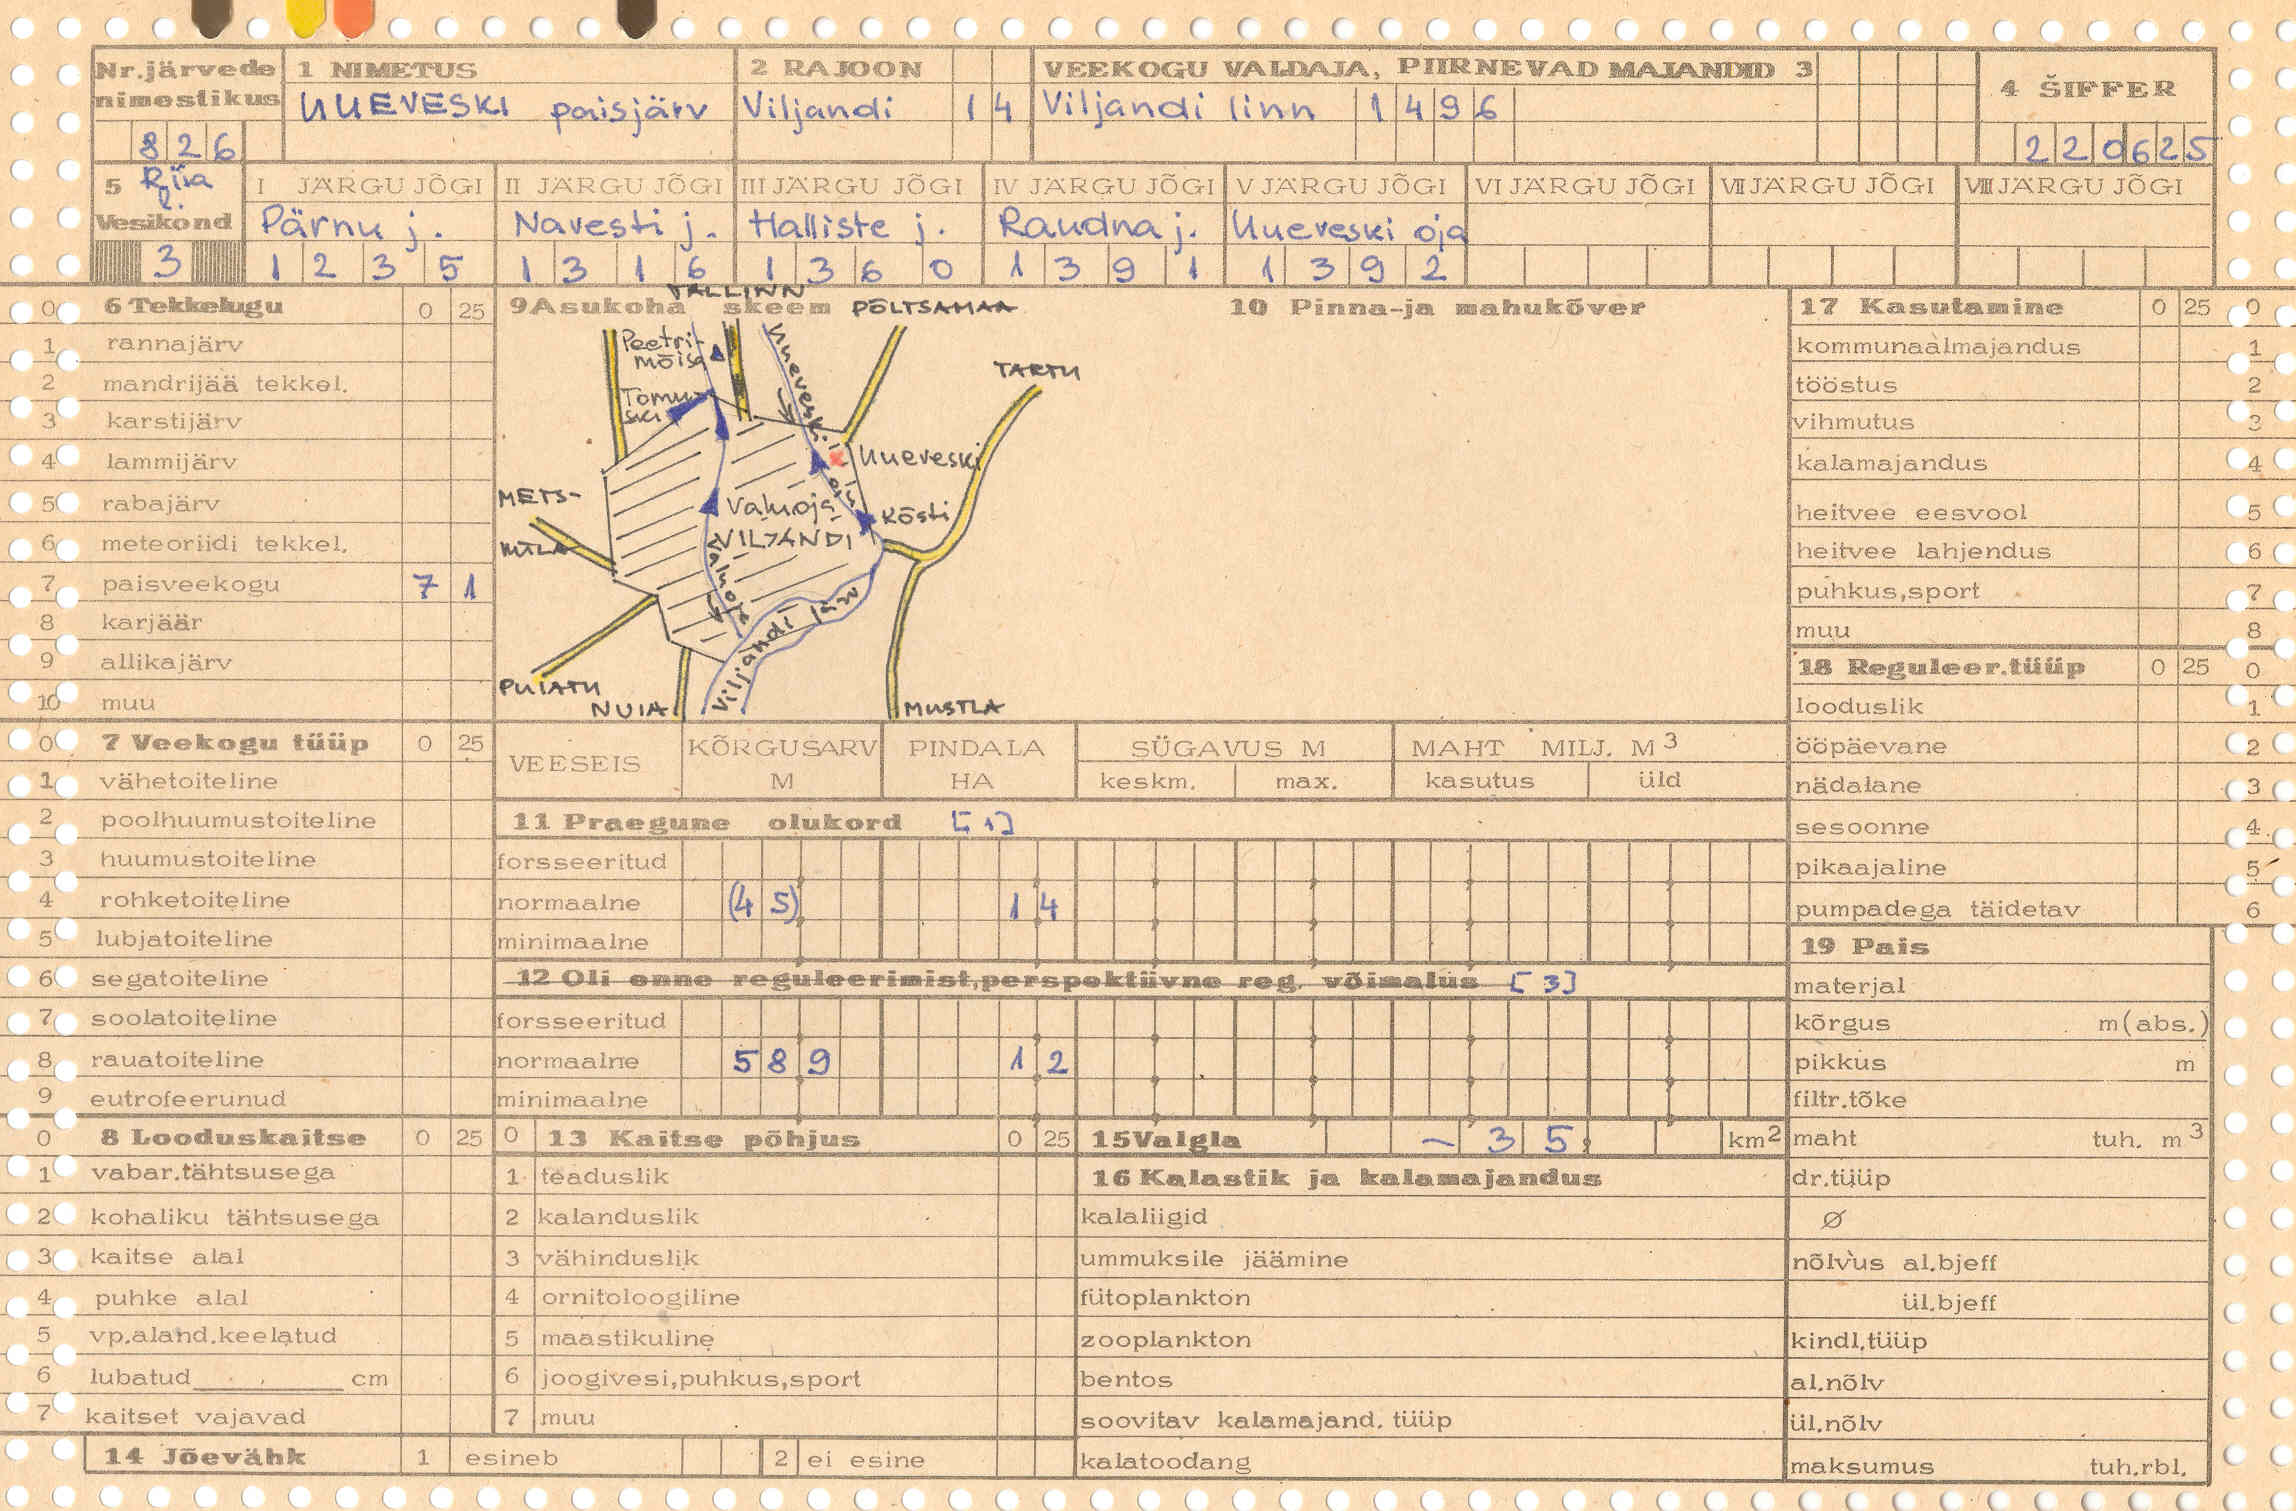 Nr.järvede nimestikus
826
1 NIMETUS
UUEVESKI paisjärv
2 RAJOON
Viljandi 14
VEEKOGU VALDAJA, PIIRNEVAD MAJANDID 3
Viljandi linn 1496
4 ŠIFFER
220625
5 Riia l.
Vesikond
3
I JÄRGU JÕGI
Pärnu j.
1235
II JÄRGU JÕGI
Navesti j.
1316
III JÄRGU JÕGI
Halliste j.
1360
IV JÄRGU JÕGI
Raudna j.
1391
V JÄRGU JÕGI
Uueveski oja
1392
VI JÄRGU JÕGI
VII JÄRGU JÕGI
VIII JÄRGU JÕGI
0 6 Tekkelugu 0 25
1 rannajärv
2 mandrijää tekkel.
3 karstijärv
4 lammijärv
5 rabajärv
6 meteoriidi tekkel.
7 paisveekogu 7 1
8 karjäär
9 allikajärv
10 muu
0 7 Veekogu tüüp 0 25
1 vähetoiteline
2 poolhuumustoiteline
3 huumustoiteline
4 rohketoiteline
5 lubjatoiteline
6 segatoiteline
7 soolatoiteline
8 rauatoiteline
9 eutrofeerunud
0 8 Looduskaitse 0 25
1 vabar.tähtsusega
2 kohaliku tähtsusega
3 kaitse alal
4 puhke alal
5 vp.aland.keelatud
6 lubatud cm
7 kaitset vajavad
14 Jõevähk 1 esineb 2 ei esine
9 Asukoha skeem
TALLINN
PÕLTSAMAA
Peetri-
mõisa
Uueveski
TARTU
Tomu-
ski
Uueveski
METS-
KÜLA
Valuoja
VILJANDI
Kösti
oja
Valuoja
Viljandi järv
PUIATU
NUIA
MUSTLA
10 Pinna-ja mahukõver
VEESEIS
KÕRGUSARV M
PINDALA HA
SÜGAVUS M
keskm. max.
MAHT MILJ. M3
kasutus üld
11 Praegune olukord [1]
forsseeritud
normaalne (45) 14
minimaalne
12 Oli enne reguleerimist,perspektiivne reg. võimalus [3]
forsseeritud
normaalne 589 12
minimaalne
0 13 Kaitse põhjus 0 25
1 teaduslik
2 kalanduslik
3 vähinduslik
4 ornitoloogiline
5 maastikuline
6 joogivesi,puhkus,sport
7 muu
15 Valgla ~ 35, km2
16 Kalastik ja kalamajandus
kalaliigid
ummuksile jäämine
fütoplankton
zooplankton
bentos
soovitav kalamajand. tüüp
kalatoodang
17 Kasutamine 0 25 0
kommunaalmajandus 1
tööstus 2
vihmutus 3
kalamajandus 4
heitvee eesvool 5
heitvee lahjendus 6
puhkus,sport 7
muu 8
18 Reguleer.tüüp 0 25 0
looduslik 1
ööpäevane 2
nädalane 3
sesoonne 4
pikaajaline 5
pumpadega täidetav 6
19 Pais
materjal
kõrgus m(abs.)
pikkus m
filtr.tõke
maht tuh. m3
dr.tüüp
Ø
nõlvus al.bjeff
ül.bjeff
kindl.tüüp
al.nõlv
ül.nõlv
maksumus tuh.rbl.